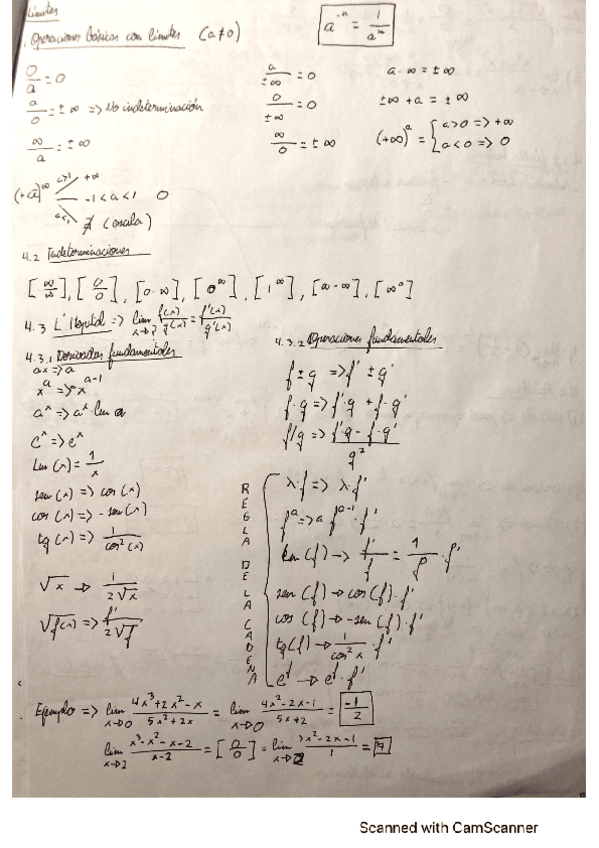 Límites
. Operaciones básicas con límites (a≠0)
a^-n = 1/a^n
0/a = 0
a/±∞ = 0
a·∞ = ±∞
a/0 = ±∞ => No indeterminación
0/±∞ = 0
±∞ + a = ±∞
∞/a = ±∞
∞/0 = ±∞
(+∞)^a = { a>0 => +∞
a<0 => 0
(+a)^∞
a>1 +∞
-1 < a < 1 0
∄ (oscila)
4.2 Indeterminaciones
[∞/∞], [0/0], [0·∞], [0^∞], [1^∞], [a-∞], [∞^0]
4.3 L'Hopital => lim x->? f(x)/g(x) = f'(x)/g'(x)
4.3.1 Derivadas fundamentales
ax => a
x^a => x^a-1
a^x => a^x · Ln a
e^x => e^x
Ln (x) = 1/x
sen (x) => cos (x)
cos (x) => - sen (x)
tg (x) => 1/cos²(x)
√x -> 1/2√x
√f(x) => f'/2√f
4.3.2 Operaciones fundamentales
f ± g => f' ± g'
f·g => f'g + f·g'
f/g => f'g - f·g'/g²
REGLA DE LA CADENA
λ·f => λ·f'
f^a => a f^a-1 · f'
Ln (f) -> f'/f = 1/f · f'
sen (f) -> cos (f)·f'
cos (f) -> -sen (f)·f'
tg (f) -> 1/cos² x · f'
e^f -> e^f · f'
. Ejemplo => lim x->0 4x³+2x²-x/5x²+2x = lim x->0 4x²-2x-1/5x+2 = -1/2
lim x->2 x³-x²-x-2/x-2 = [0/0] = lim x->2 3x²-2x-1/1 = 7
Scanned with CamScanner